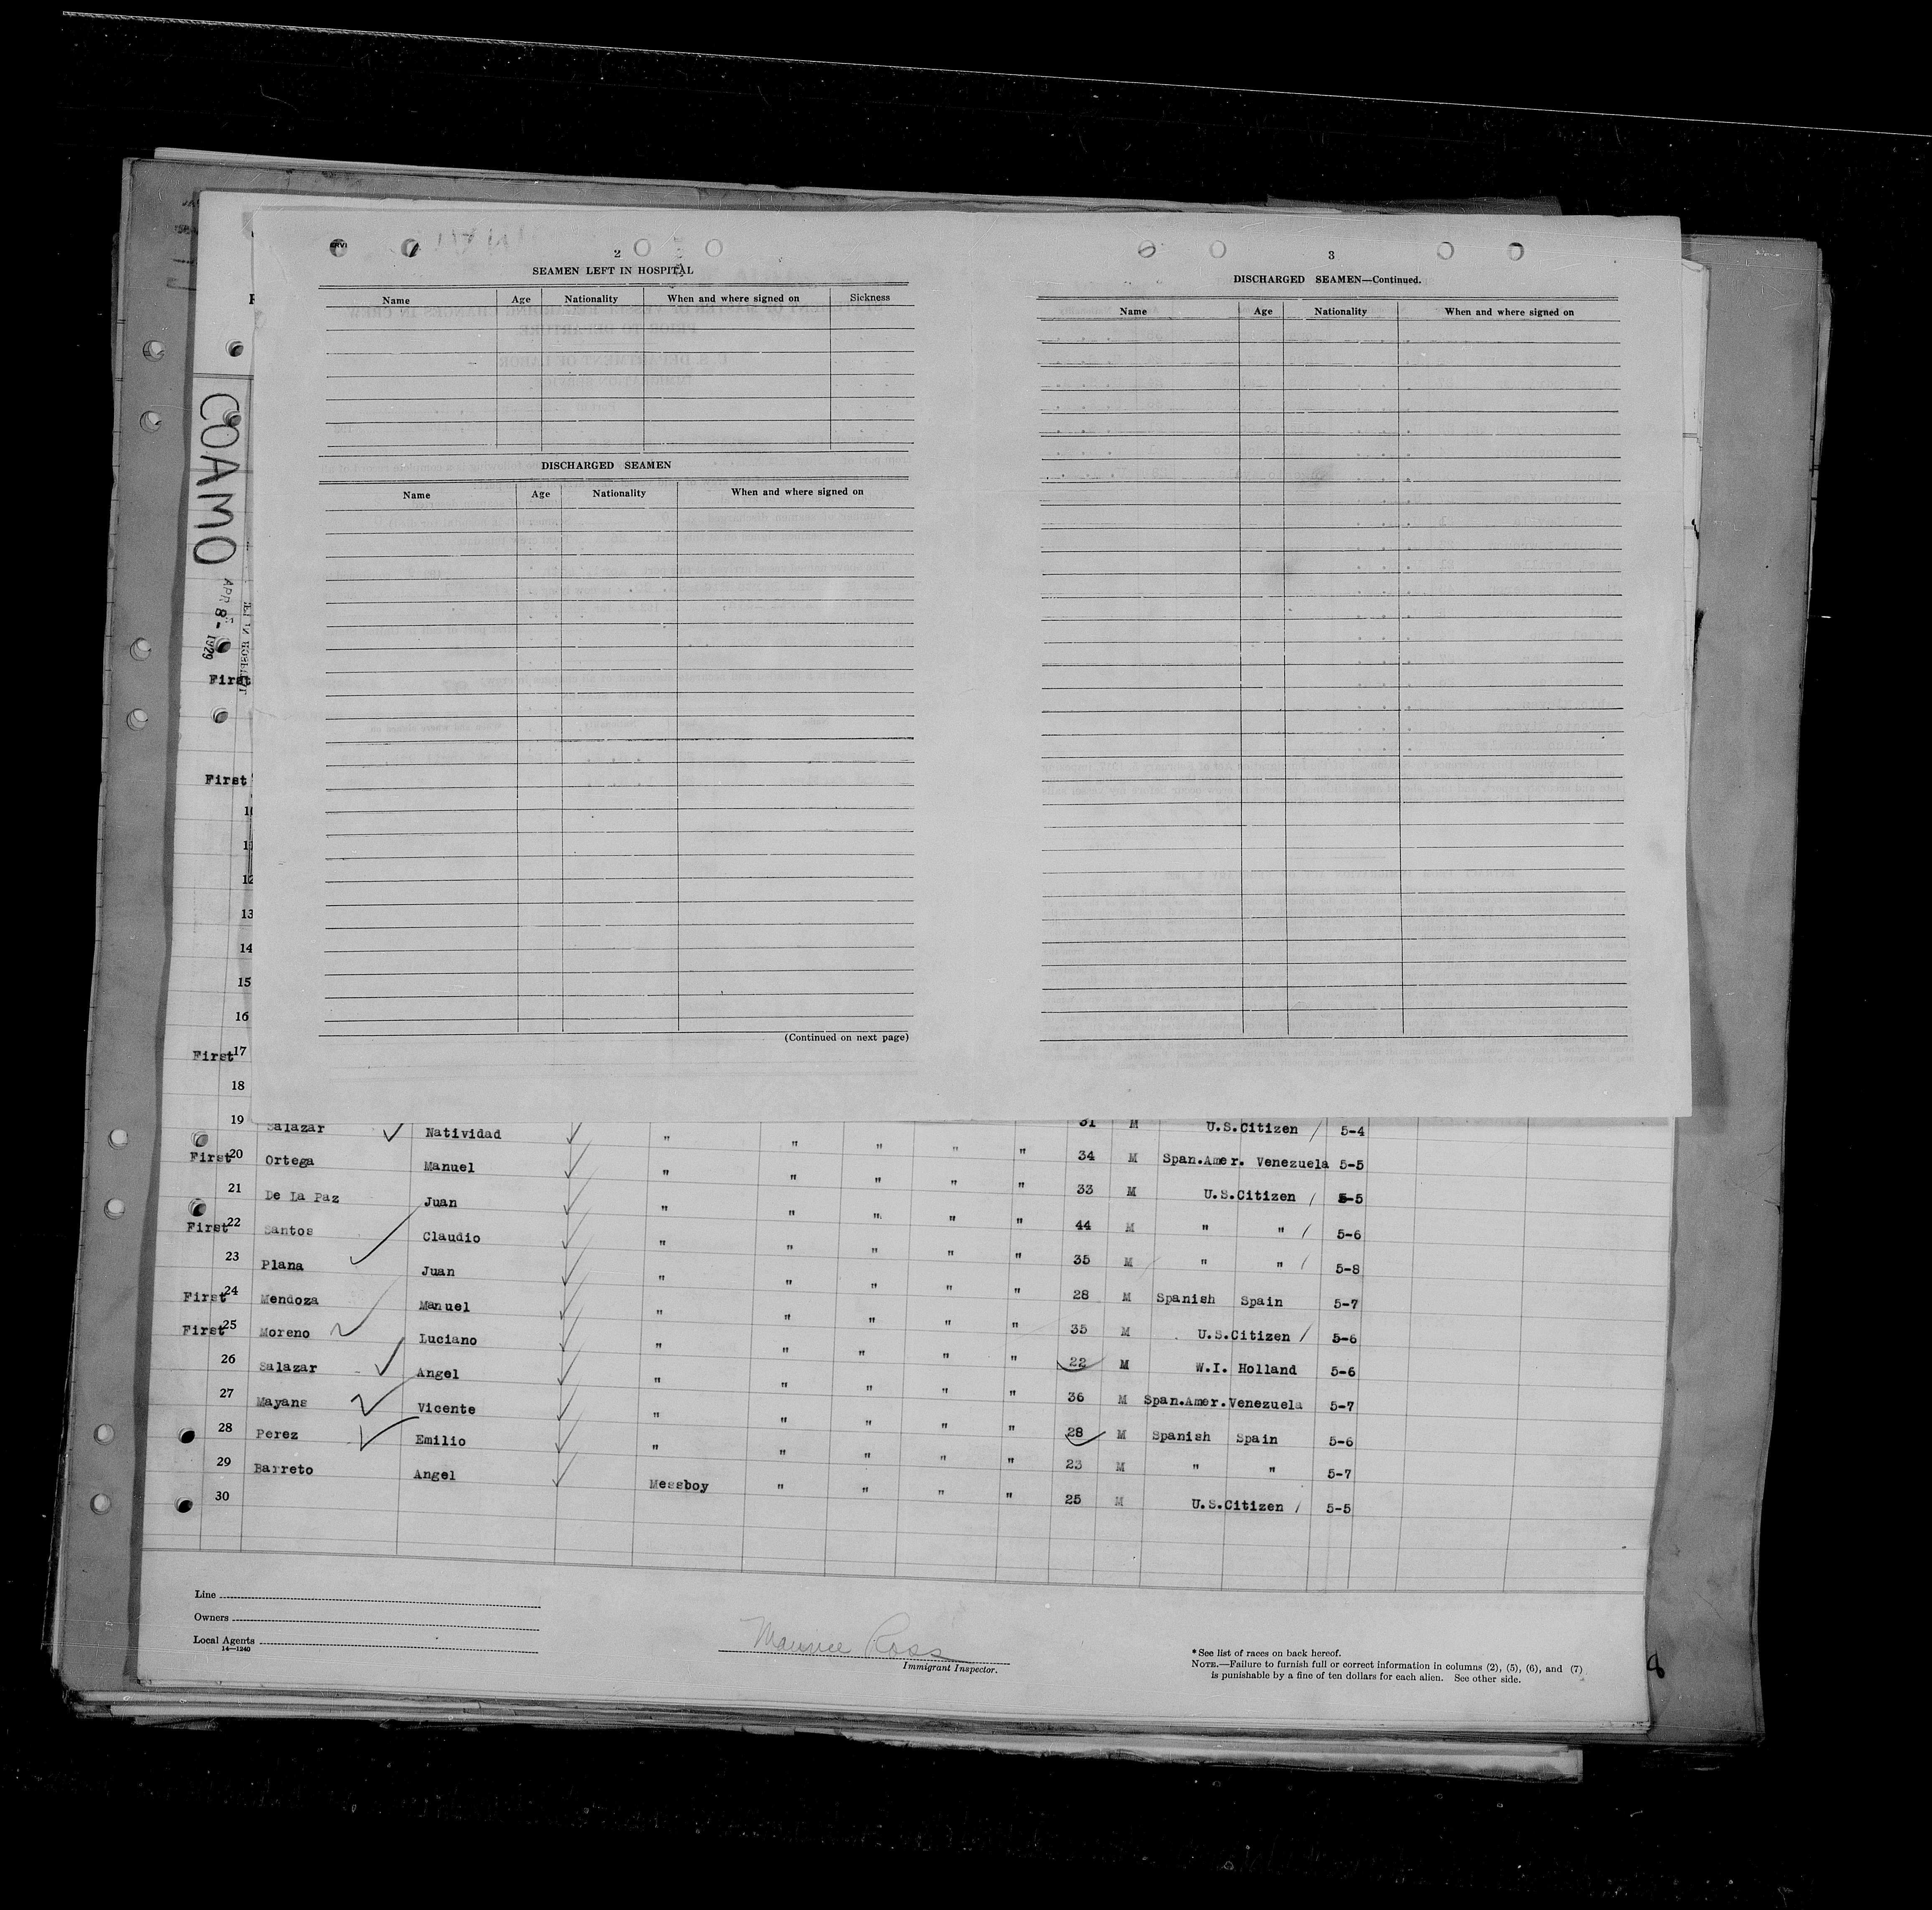 2
SEAMEN LEFT IN HOSPITAL
Name Age Nationality When and where signed on Sickness
DISCHARGED SEAMEN
Name Age Nationality When and where signed on
(Continued on next page)
3
DISCHARGED SEAMEN—Continued.
Name Age Nationality When and where signed on
COAMO
APR 8- 1929
First
First
10
11
12
13
14
15
16
First 17
18
19 Salazar Natividad " " " " " 31 M U.S.Citizen 5-4
First 20 Ortega Manuel " " " " " 34 M Span.Amer. Venezuela 5-5
21 De La Paz Juan " " " " " 33 M U.S.Citizen 5-5
First 22 Santos Claudio " " " " " 44 M " " 5-6
23 Plana Juan " " " " " 35 M " " 5-8
First 24 Mendoza Manuel " " " " " 28 M Spanish Spain 5-7
First 25 Moreno Luciano " " " " " 35 M U.S.Citizen 5-6
26 Salazar Angel " " " " " 22 M W.I. Holland 5-6
27 Mayans Vicente " " " " " 36 M Span.Amer.Venezuela 5-7
28 Perez Emilio " " " " " 28 M Spanish Spain 5-6
29 Barreto Angel " " " " 23 M " " 5-7
30 Messboy " " " " 25 M U.S.Citizen 5-5
Line
Owners
Local Agents
14—1240
Maurice Ross
Immigrant Inspector.
*See list of races on back hereof.
NOTE.—Failure to furnish full or correct information in columns (2), (5), (6), and (7)
is punishable by a fine of ten dollars for each alien. See other side.
8